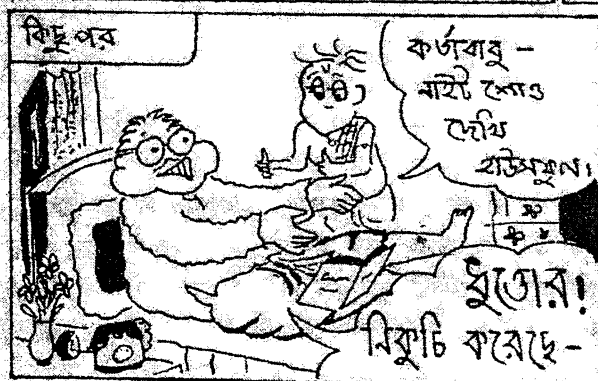 কিছু পর
কর্তাবাবু -
নাইট শোও
দেখি
হাউসফুল।
ধুত্তোর!
নিকুচি করেছে -